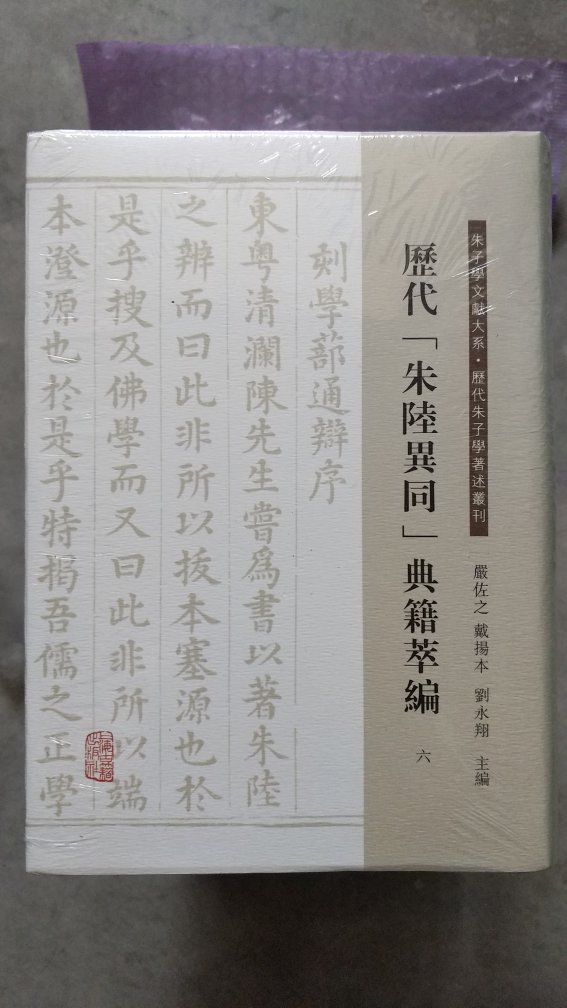 朱子學文獻大系·歷代朱子學著述叢刊
嚴佐之 戴揚本 劉永翔 主編
歷代「朱陸異同」典籍萃編
六
刻學蔀通辯序
東粵清瀾陳先生嘗為書以著朱陸
之辨而曰此非所以拔本塞源也於
是乎搜及佛學而又曰此非所以端
本澄源也於是乎特揭吾儒之正學
上海古籍出版社